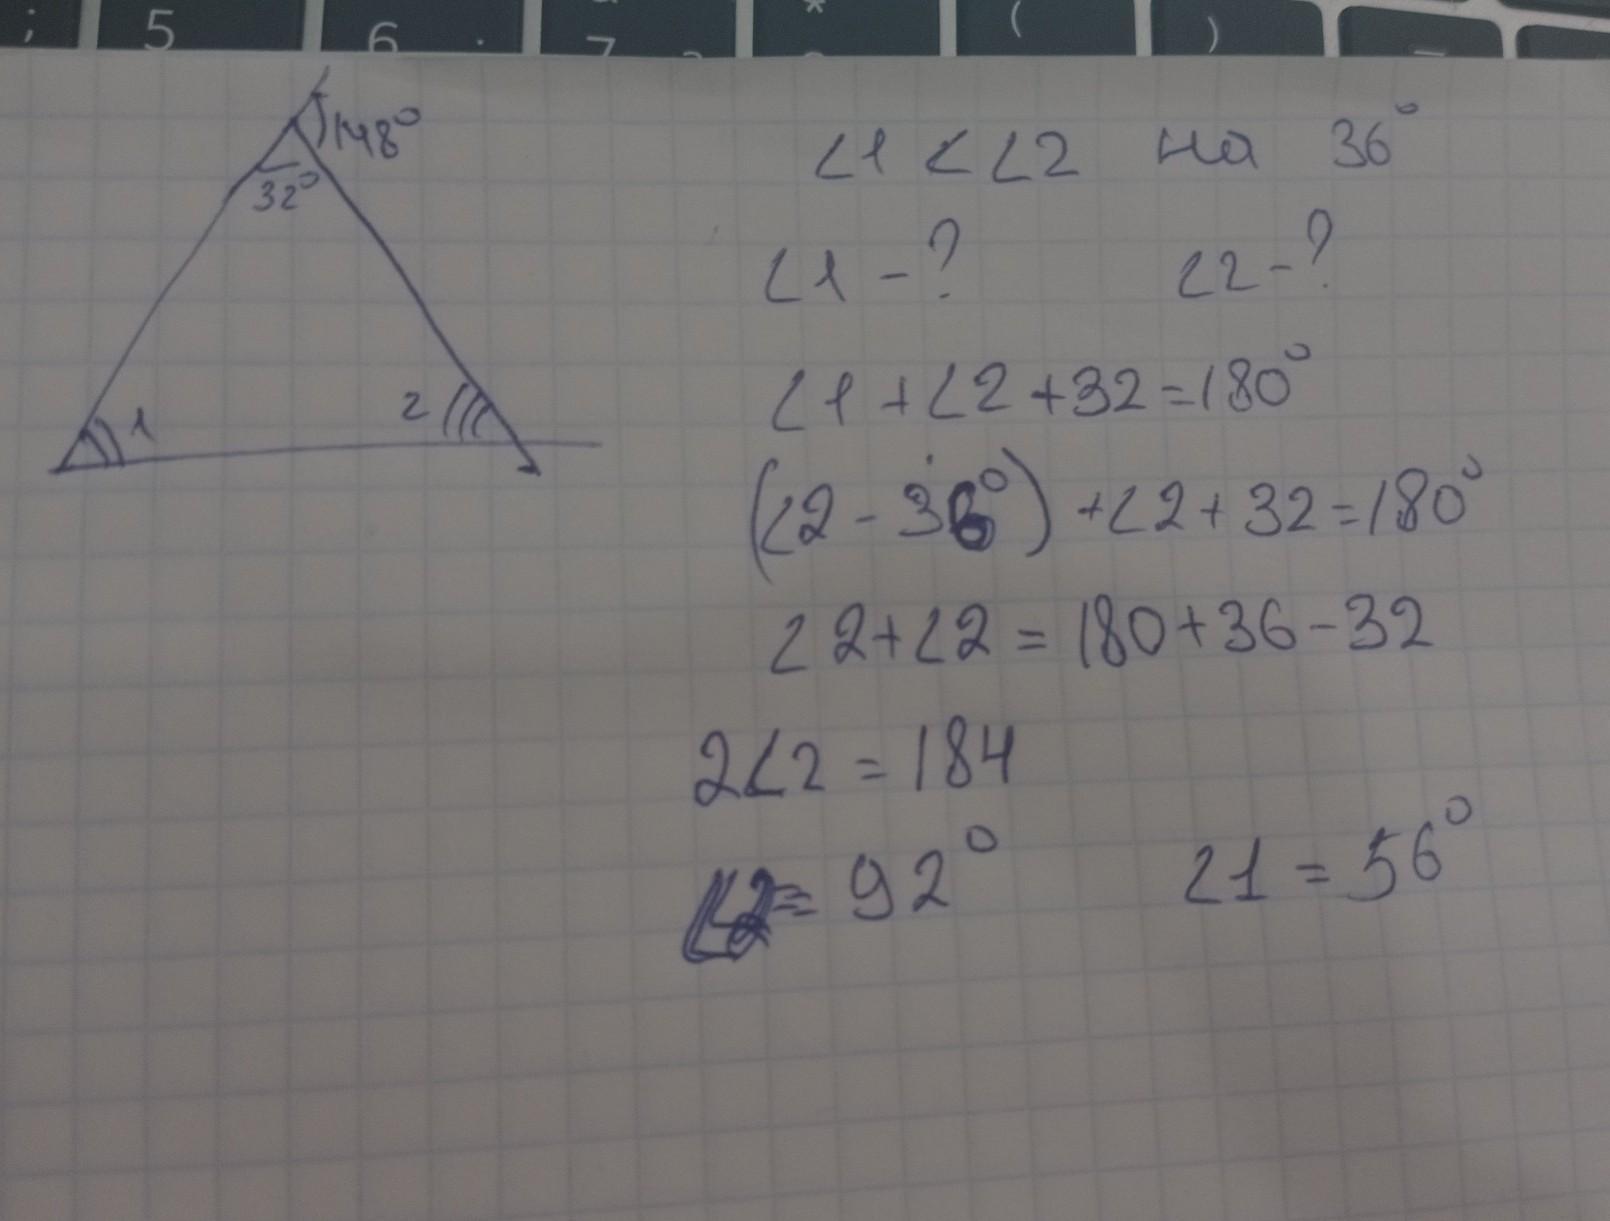 ; 5 6 . 7 * ( ) _
148°
32°
1
2
∠1 < ∠2 на 36°
∠1 - ? ∠2 - ?
∠1 + ∠2 + 32 = 180°
(∠2 - 36°) + ∠2 + 32 = 180°
∠2 + ∠2 = 180 + 36 - 32
2∠2 = 184
∠2 = 92° ∠1 = 56°